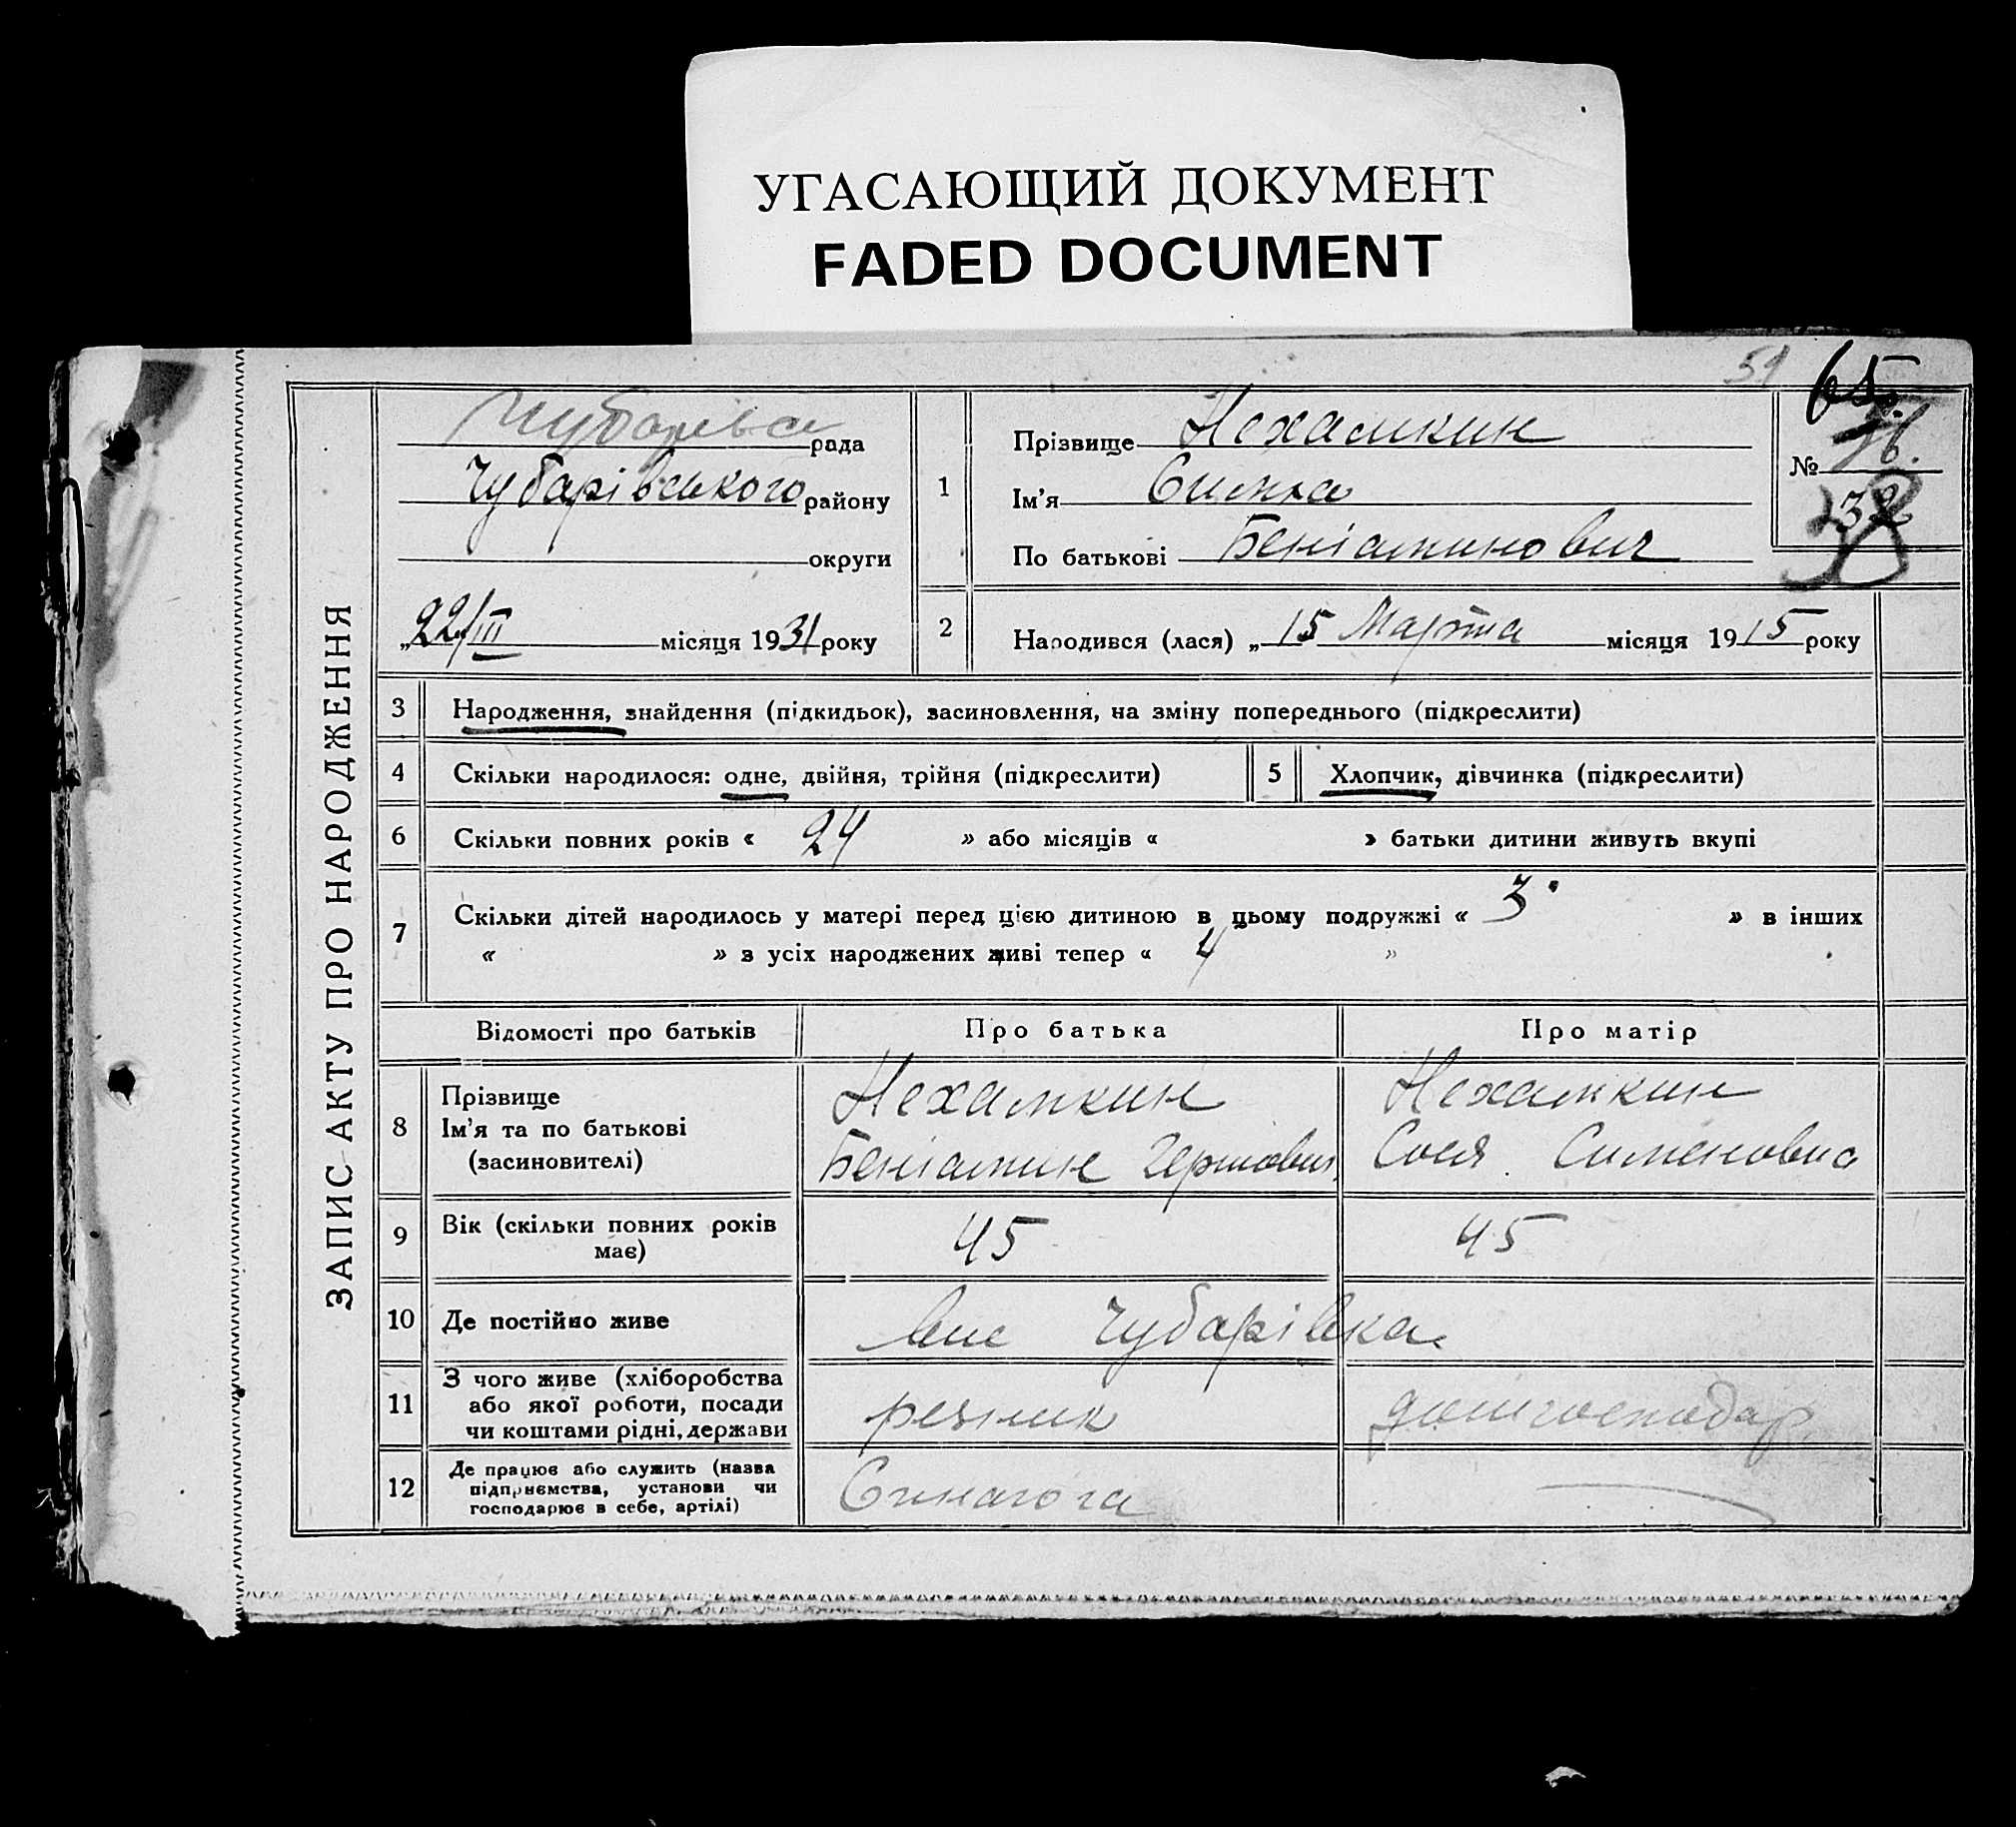 УГАСАЮЩИЙ ДОКУМЕНТ
FADED DOCUMENT
59
65.
ЗАПИС АКТУ ПРО НАРОДЖЕННЯ
рада
Чубарівського району
округи
„22/III місяця 1931 року
1
Прізвище Нехамкин
Ім'я
По батькові Беніаминович
№
32
2
Народився (лася) „15 Марта місяця 1915 року
3 Народження, знайдення (підкидьок), засиновлення, на зміну попереднього (підкреслити)
4 Скільки народилося: одне, двійня, трійня (підкреслити) 5 Хлопчик, дівчинка (підкреслити)
6 Скільки повних років « 24 » або місяців « » батьки дитини живуть вкупі
7 Скільки дітей народилось у матері перед цією дитиною в цьому подружжі « 3 » в інших
« » з усіх народжених живі тепер « 4 »
Відомості про батьків Про батька Про матір
8 Прізвище Нехамкин Нехамкин
Ім'я та по батькові
(засиновителі) Беніамин Гершович Сося Сименовна
9 Вік (скільки повних років
має) 45 45
10 Де постійно живе Чубарівка
11 З чого живе (хліборобства
або якої роботи, посади резник домгосподар
чи коштами рідні, держави
12 Де працює або служить (назва
підприємства, установи чи Синагога
господарює в себе, артілі)